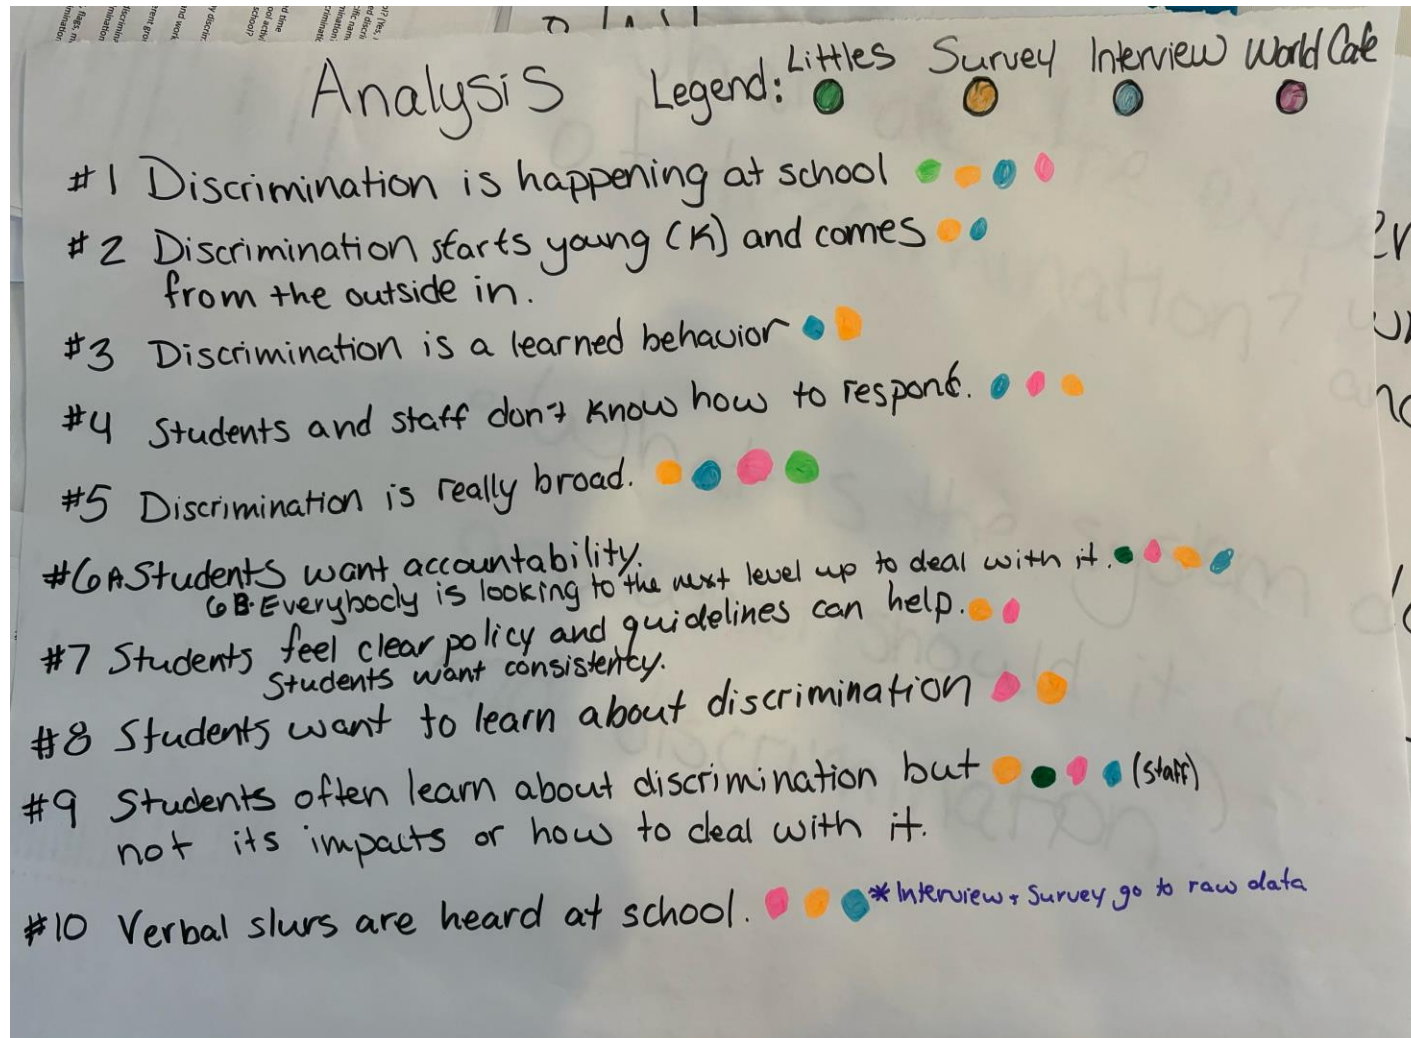 Analysis Legend: Littles Survey Interview World Cafe
#1 Discrimination is happening at school
#2 Discrimination starts young (K) and comes
from the outside in.
#3 Discrimination is a learned behavior
#4 Students and staff don't know how to respond.
#5 Discrimination is really broad.
#6A Students want accountability.
6B. Everybody is looking to the next level up to deal with it.
#7 Students feel clear policy and guidelines can help.
Students want consistency.
#8 Students want to learn about discrimination
#9 Students often learn about discrimination but (staff)
not its impacts or how to deal with it.
#10 Verbal slurs are heard at school. *Interview + Survey go to raw data